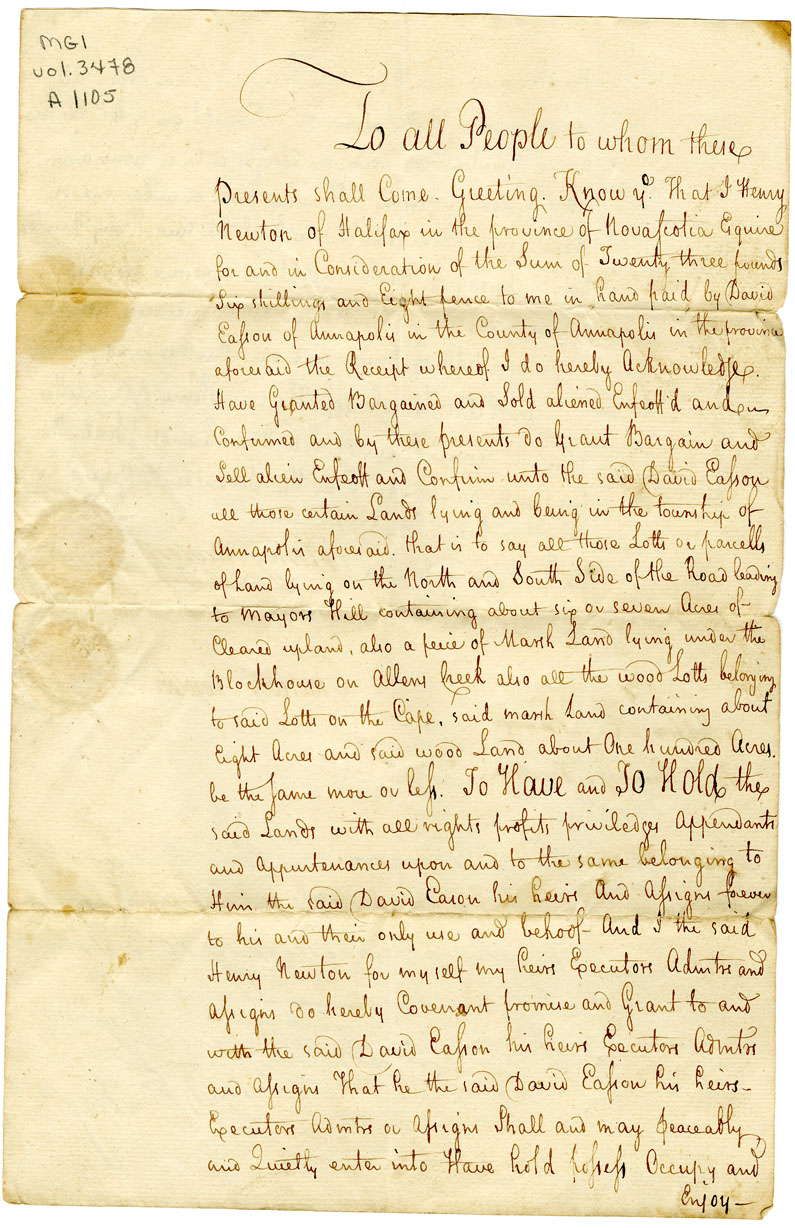 MG1
vol. 3478
A 1105
To all People to whom these
Presents shall Come. Greeting. Know ye. That I Henry
Newton of Halifax in the province of Novascotia Esquire
for and in Consideration of the Sum of Twenty three pounds
Six shillings and Eight pence to me in hand paid by David
Easson of Annapolis in the County of Annapolis in the province
aforesaid the Receipt whereof I do hereby Acknowledge.
Have Granted Bargained and Sold aliened Enfeoff'd and
Confirmed and by these presents do Grant Bargain and
Sell alien Enfeoff and Confirm unto the said David Easson
all those certain Lands lying and being in the township of
Annapolis aforesaid. that is to say all those Lotts or parcells
of Land lying on the North and South Side of the Road leading
to Mayors Hill containing about six or seven Acres of
Cleared upland, also a peice of Marsh Land lying under the
Blockhouse on Allens Creek also all the wood Lotts belonging
to said Lotts on the Cape, said marsh Land containing about
Eight Acres and said wood Land about One hundred Acres.
be the same more or less. To Have and To Hold the
said Lands with all rights profits priviledges Appendants
and Appurtenances upon and to the same belonging to
Him the said David Eason his heirs And Assigns forever
to his and their only use and behoof And I the said
Henry Newton for myself my heirs Executors Admtrs and
Assigns do hereby Covenant promise and Grant to and
with the said David Easson his heirs Executors Admtrs
and Assigns That he the said David Easson his heirs-
Executors Admtrs or Assigns Shall and may peaceably
and Quietly enter into Have hold possess Occupy and
Enjoy-